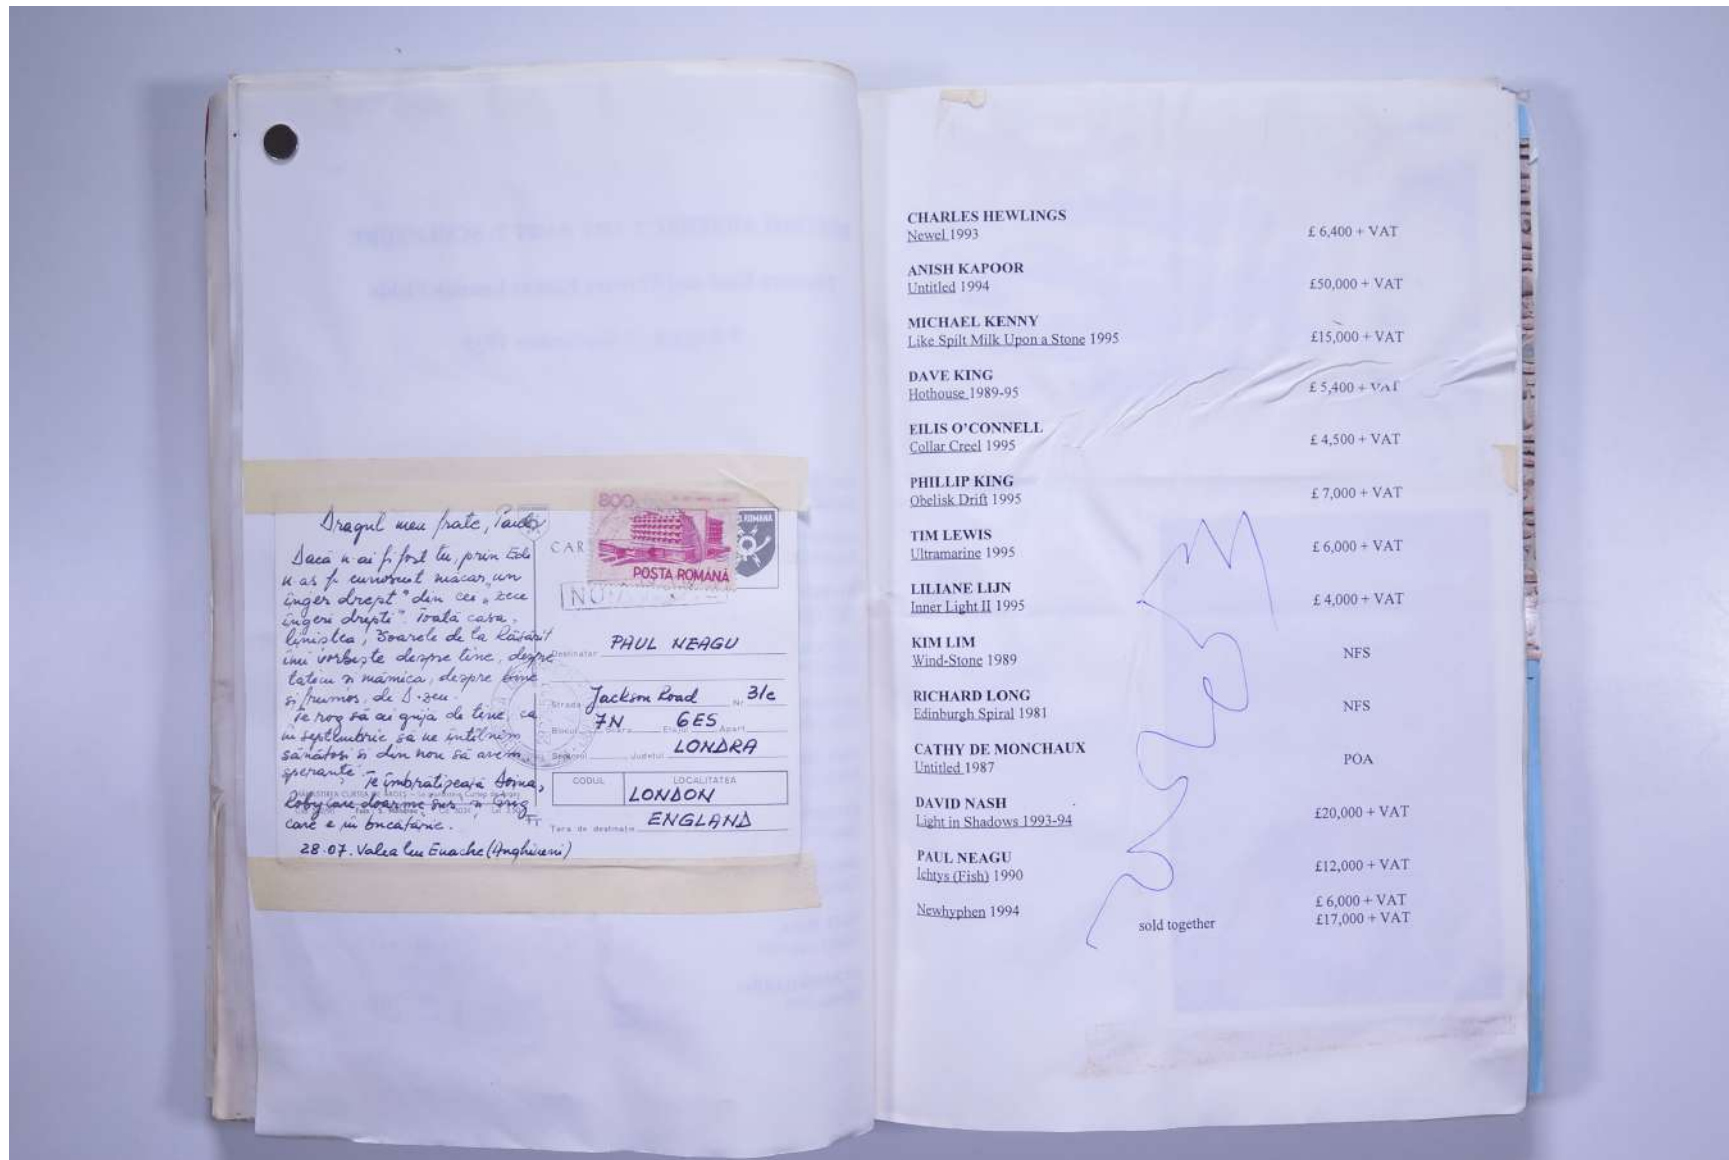 Dragul meu frate, Paul
Dacă n-ai fi fost tu, prin Edi
n-aș fi cunoscut măcar „un
înger drept" din cei „zece
îngeri drepți". Toată casa,
liniștea, Soarele de la Răsărit
îmi vorbește despre tine, despre
tăticu și mămica, despre bine
și frumos, de D-zeu.
Te rog să ai grijă de tine, ca
în septembrie să ne întâlnim
sănătoși și din nou să avem
speranțe. Te îmbrățișează Doina,
Roby care doarme sus și
care e în bucătărie.
28.07. Valea lui Enache (Anghireni)
800
POSTA ROMÂNĂ
CAR
ROMANA
Destinatar PAUL NEAGU
Strada Jackson Road Nr 31c
Blocul 7N Scara Etajul 6ES Apart.
Sectorul Județul LONDRA
CODUL LOCALITATEA
LONDON
Țara de destinație ENGLAND
CHARLES HEWLINGS
Newel 1993 £ 6,400 + VAT
ANISH KAPOOR
Untitled 1994 £50,000 + VAT
MICHAEL KENNY
Like Spilt Milk Upon a Stone 1995 £15,000 + VAT
DAVE KING
Hothouse 1989-95 £ 5,400 + VAT
EILIS O'CONNELL
Collar Creel 1995 £ 4,500 + VAT
PHILLIP KING
Obelisk Drift 1995 £ 7,000 + VAT
TIM LEWIS
Ultramarine 1995 £ 6,000 + VAT
LILIANE LIJN
Inner Light II 1995 £ 4,000 + VAT
KIM LIM
Wind-Stone 1989 NFS
RICHARD LONG
Edinburgh Spiral 1981 NFS
CATHY DE MONCHAUX
Untitled 1987 POA
DAVID NASH
Light in Shadows 1993-94 £20,000 + VAT
PAUL NEAGU
Ichtys (Fish) 1990 £12,000 + VAT
Newhyphen 1994 £ 6,000 + VAT
sold together £17,000 + VAT